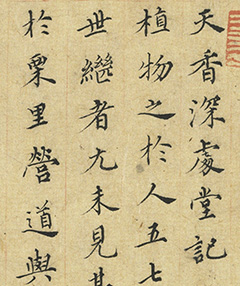 天香深處堂記
植物之於人五七
世繼者尤未見其
於粟里營道與